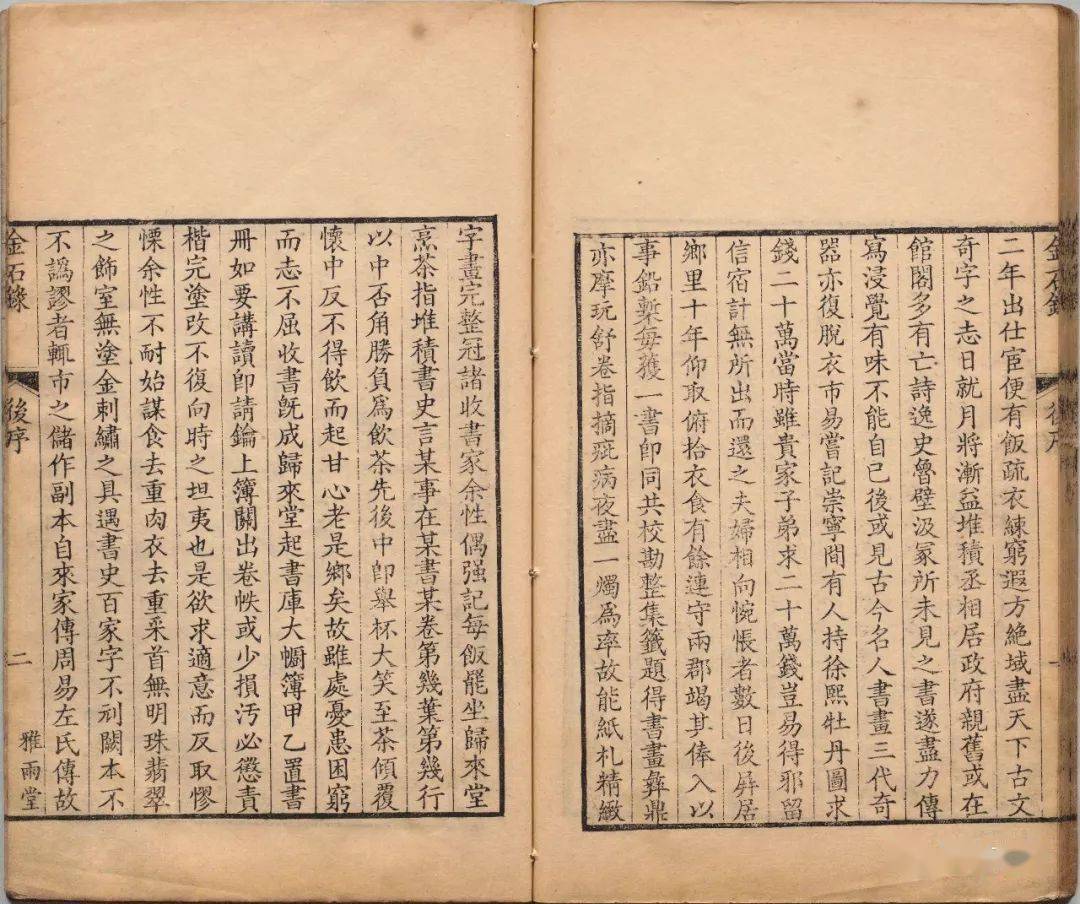 金石錄
後序
一
二年出仕宦便有飯疏衣練窮遐方絕域盡天下古文
奇字之志日就月將漸益堆積丞相居政府親舊或在
館閣多有亡詩逸史魯壁汲冢所未見之書遂盡力傳
寫浸覺有味不能自已後或見古今名人書畫三代奇
器亦復脫衣市易嘗記崇寧間有人持徐熙牡丹圖求
錢二十萬當時雖貴家子弟求二十萬錢豈易得邪留
信宿計無所出而還之夫婦相向惋悵者數日後屏居
鄉里十年仰取俯拾衣食有餘連守兩郡竭其俸入以
事鉛槧每獲一書即同共校勘整集籤題得書畫彝鼎
亦摩玩舒卷指摘疵病夜盡一燭為率故能紙札精緻
字畫完整冠諸收書家余性偶强記每飯罷坐歸來堂
烹茶指堆積書史言某事在某書某卷第幾葉第幾行
以中否角勝負爲飲茶先後中即舉杯大笑至茶傾覆
懷中反不得飲而起甘心老是鄉矣故雖處憂患困窮
而志不屈收書旣成歸來堂起書庫大櫥簿甲乙置書
冊如要講讀即請鑰上簿關出卷帙或少損汚必懲責
楷完塗改不復向時之坦夷也是欲求適意而反取憀
慄余性不耐始謀食去重肉衣去重采首無明珠翡翠
之飾室無塗金刺繡之具遇書史百家字不刓闕本不
不譌謬者輒市之儲作副本自來家傳周易左氏傳故
金石錄
後序
二
雅雨堂